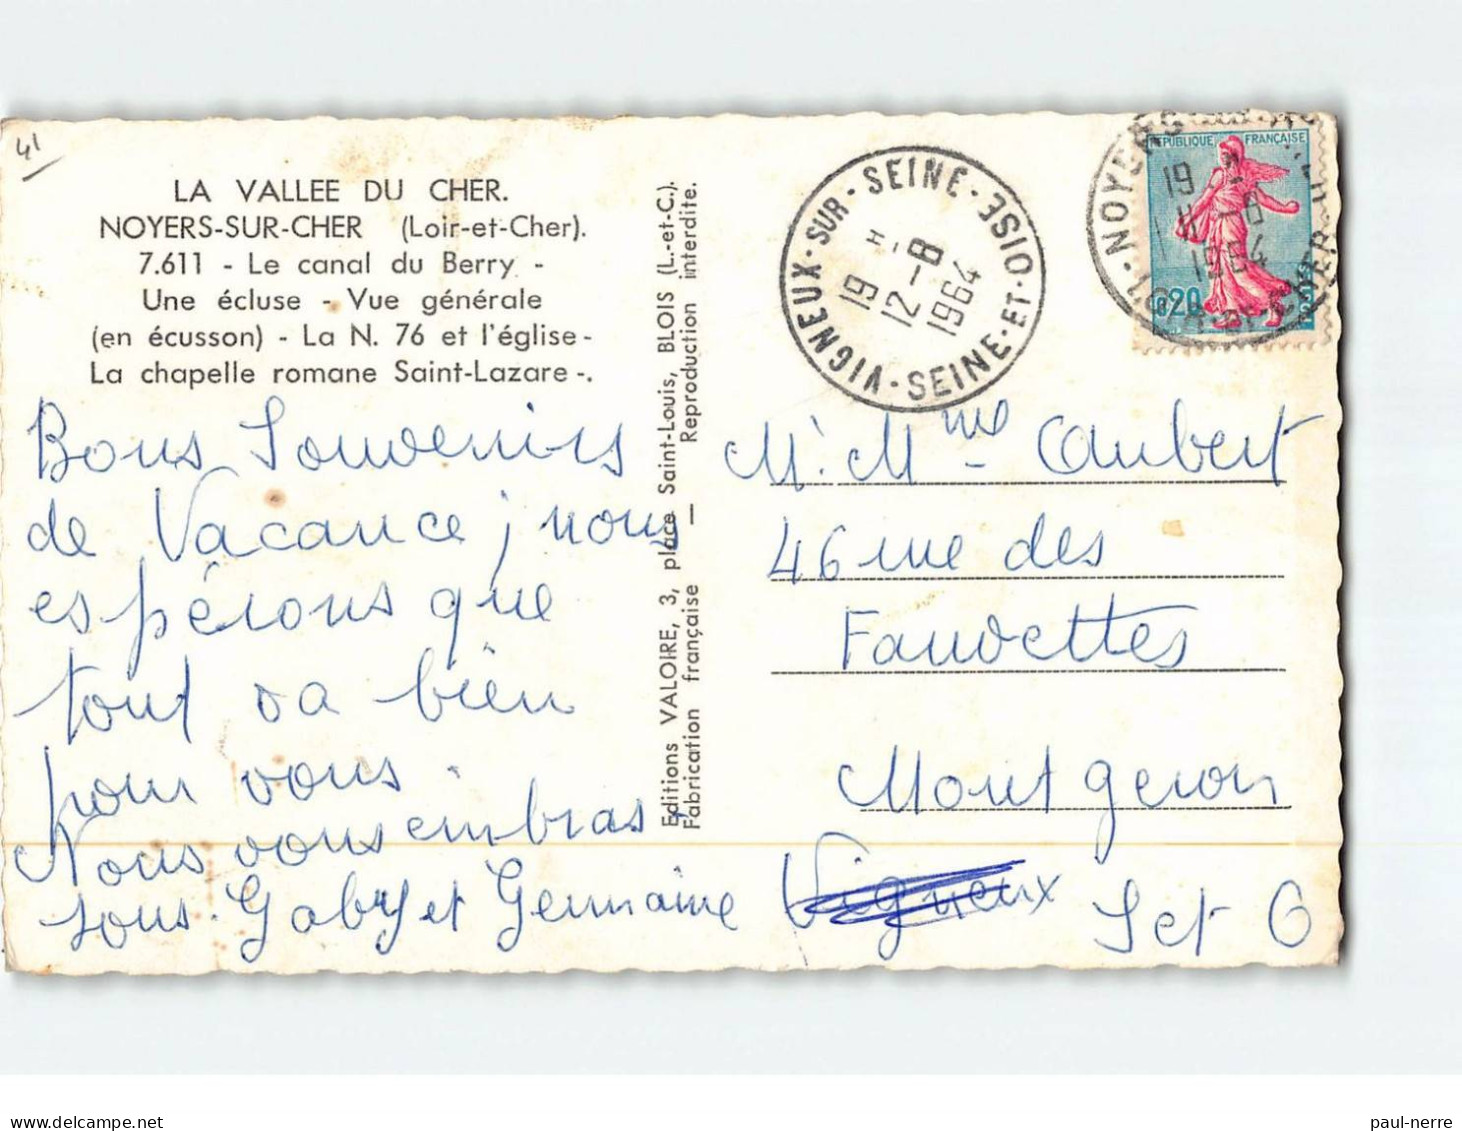 41
LA VALLEE DU CHER.
NOYERS-SUR-CHER (Loir-et-Cher).
7.611 - Le canal du Berry -
Une écluse - Vue générale
(en écusson) - La N. 76 et l'église -
La chapelle romane Saint-Lazare -.
Bons Souvenirs
de Vacance, nous
espérons que
tout va bien
pour vous
Nous vous embras
sons. Gaby et Germaine
Editions VALOIRE, 3, place Saint-Louis, BLOIS (L.-et-C.).
Fabrication française — Reproduction interdite.
VIGNEUX-SUR-SEINE-SEINE-ET-OISE
19 H
12-8
1964
REPUBLIQUE FRANÇAISE
0,20
NOYERS
19 H
11-8
1964
M. Mme Aubert
46 rue des
Fauvettes
Montgeron
Vigneux S et O
paul-nerre